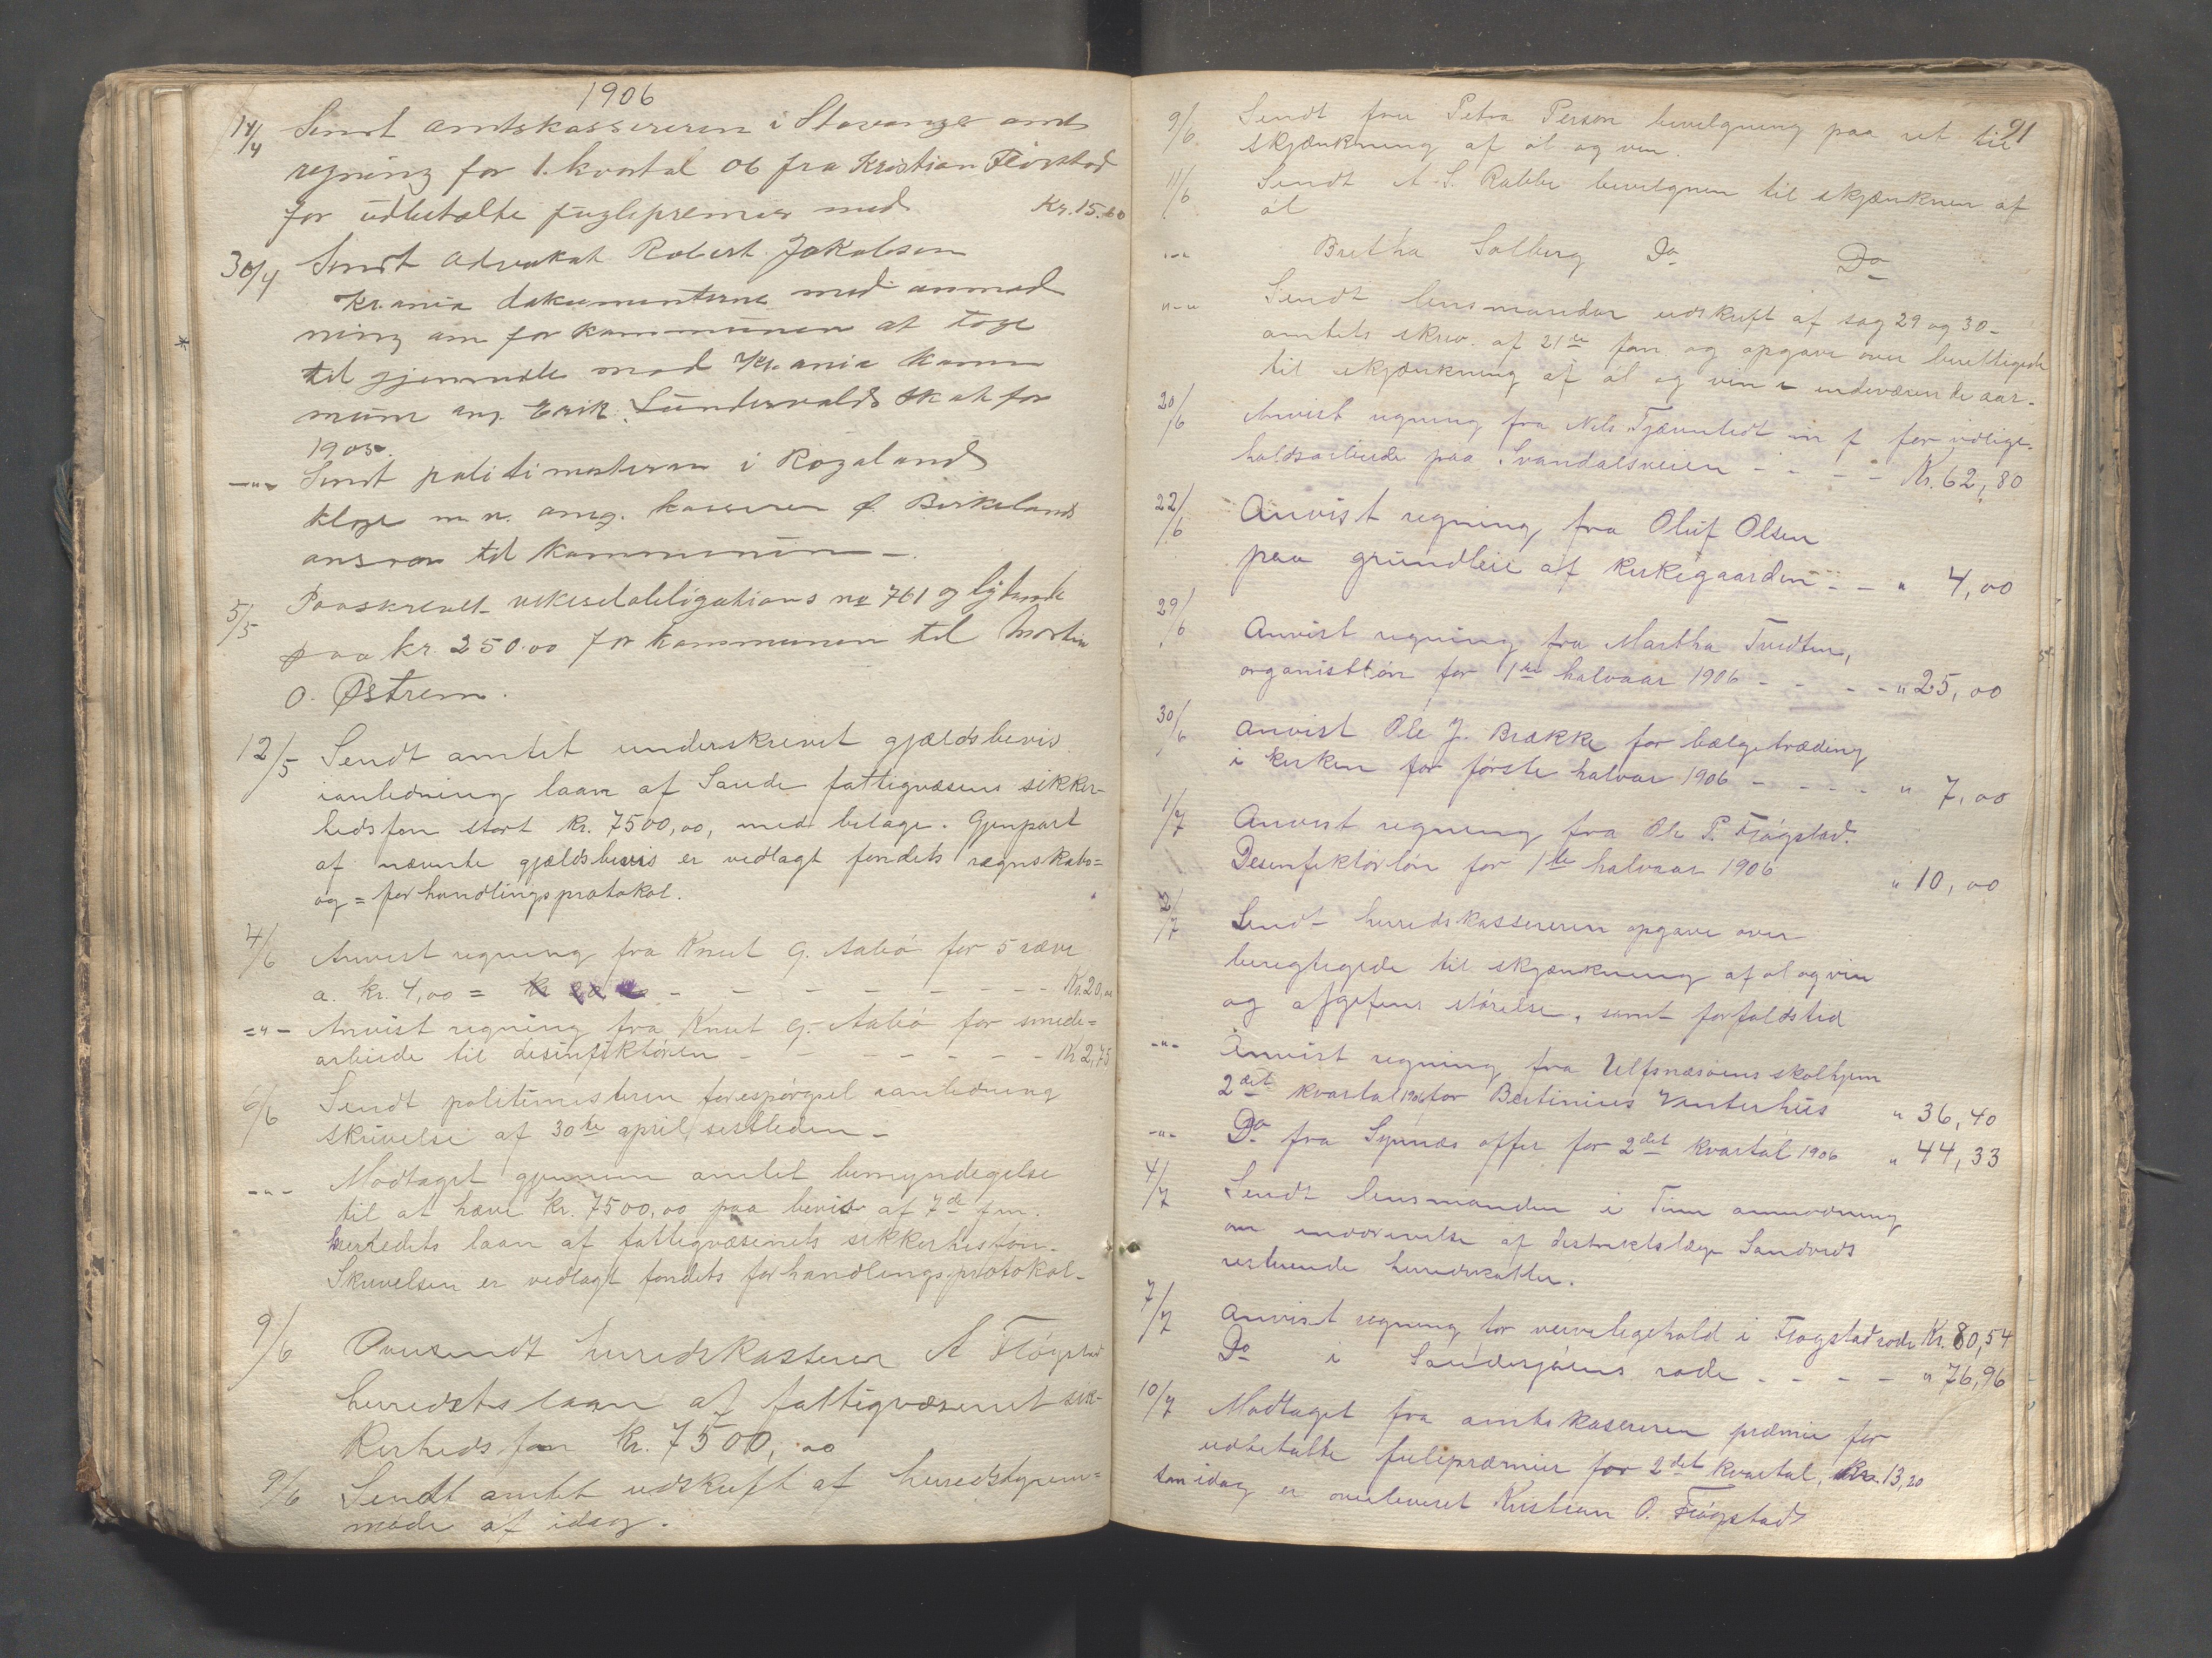 1906
14/4 Sendt amtskassereren i Stavanger amt
regning for 1. kvartal 06 fra Kristian Fløistad
for udbetalte fuglepremier med Kr. 15.60
30/4 Sendt advokat Robert Jakobsen
Kr.ania dokumenterne med anmod
ning om for kommunen at tage
til gjenmæle mod Kr.ania kom
mune ang. Erik Sundervalds skat for
1905.
-"- Sendt politimesteren i Rogaland
klage m. v. ang. kasserer Birkelands
ansvar til kommunen -.
5/5 Paaskrevet vekselobligations no 761 lydende
paa kr. 250.00 for kommunen til Morten
O. Østrem.
12/5 Sendt amtet underskrevet gjældsbevis
ianledning laan af Sande fattigvæsens sikker-
hedsfon stort kr. 7500,00, med bilage. Gjenpart
af nævnte gjældsbevis er vedlagt fondets regnskabs=
og = forhandlingsprotokol.
4/6 Anvist regning fra Knut G. Aabø for 5 ræve
a. kr. 4,00 = - - - - - - Kr. 20,00
="- Anvist regning fra Knut G. Aabø for smede=
arbeide til desinfektøren - - - - - - Kr 2,75
6/6 Sendt politimesteren forespørgsel ianledning
skrivelse af 30te april sistleden -
-"- Modtaget gjennem amtet bemyndegelse
til at hæve kr. 7500,00 paa bevis af 7de f.m.
herredets laan af fattigvæsenets sikkerhetsfon.
Skrivelsen er vedlagt fondets forhandlingsprotokol-
9/6 Oversendt herredskasserer A Fløgstad
herredets laan af fattigvæsenet sik-
kerheds fon Kr. 7500,00
9/6 Sendt amtet udskrift af herredstyrem=
møde af idag.
91
9/6 Sendt fru Petra Person bevilgning paa ret til
skjænkning af øl og vin.
11/6 Sendt A. S. Rabbe bevilgnen til skjænknen af
øl
-"- Bretha Solberg Do Do
"-" Sendt lensmanden udskrift af sag 29 og 30-
amtets skriv. af 21de jan. og opgave over berettigede
til skjænkning af øl og vin i indeværende aar.
20/6 Anvist regning fra Nils Tjæmslidt m f for vedlige-
holdsarbeide paa Svandalsveien - - - Kr. 62,80
22/6 Anvist regning fra Oluf Olsen
paa grundleie af kirkegaarden - - " 4,00
29/6 Anvist regning fra Martha Tvedten,
organistløn for 1ste halvaar 1906 - - - - " 25,00
30/6 Anvist Ole J. Brække for bælgetræding
i kirken for første halvaar 1906 - - - - " 7,00
1/7 Anvist regning fra Ole P. Fløgstad.
Desenfektørløn for 1ste halvaar 1906 " 10,00
2/7 Sendt herredskassereren opgave over
beregtigede til skjænkning af øl og vin
og afgiftens størelse, samt forfaldstid
-"- Anvist regning fra Ulfsnæsøens skolhjem
2det kvartal 1906 for Bertinius Vinterhus " 36,40
-"- Do fra Synnæs offer for 2det kvartal 1906 " 44,33
4/7 Sendt lensmanden i Tinn anmodning
om inddrivelse af distriktslæge Sandveds
resterende herredsskatter.
7/7 Anvist regning for veivedligehold i Fløgstad rode Kr. 80,54
Do i Sandsjøens rode - - - - " 76,96
10/7 Modtaget fra amtskassereren præmie for
udbetalte fulepræmier for 2det kvartal, Kr. 13,20
som idag er overleveret Kristian O. Fløgstad